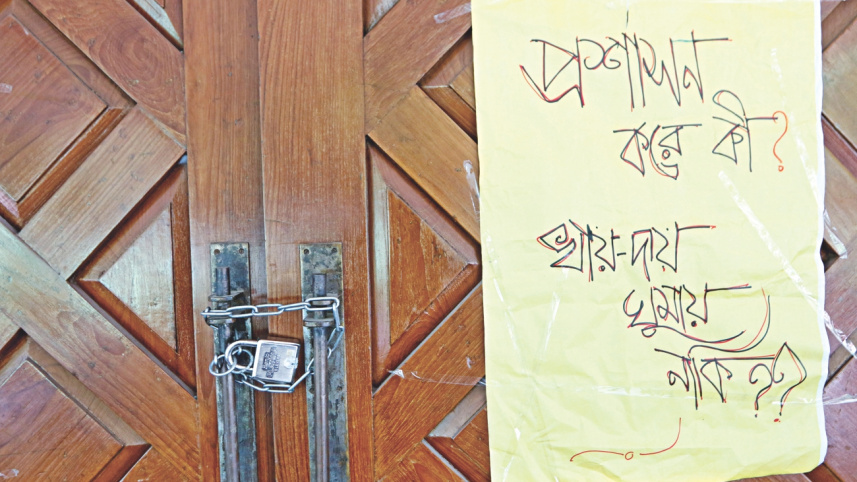 প্রশাসন
করে কী?
খায়-দায়
ঘুমায়
নাকি??